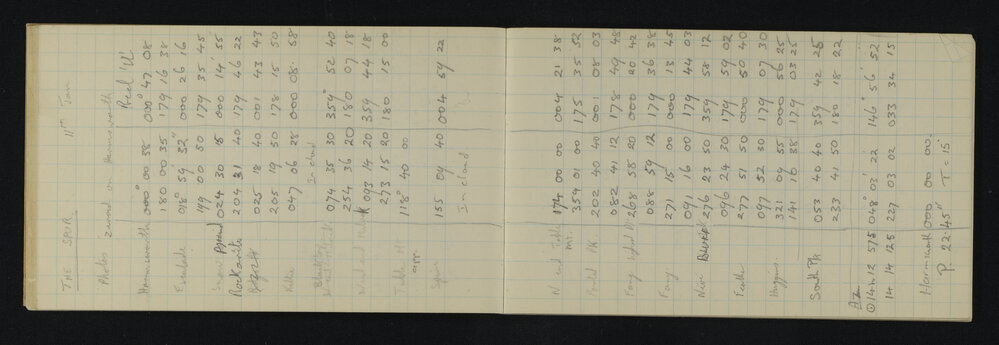 THE SPUR 11th Jan
Photos zeroed on Hammersmith Real V'
Hammersmith 000° 00 58 000° 47 08
180 00 35 179 16 38
Escalade 098° 59' 32" 000 26 16
00 50 179 35 45
024 30 5 000 14' 55
204 31 40 179 46 22
025 18 40 001 43 43
205 19 50 178 15 50
047 06 28 000 08 58
In cloud
074 35 30 359° 52 40
254 36 20 180 07 18
W end 093 14 20 359 44 18
273 15 20 180 15 00
Table Mt 118° 40 00
app.
Spur 155 04 40 004 59 22
In cloud
N end Table 174 00 00 004 21 38
Mt. 354 01 00 175 35 52
Pk 202 40 40 001 08 03
082 41 12 178 49 48
Fang 268 58 20 000 20 42
088 59 12 179 36 38
Fang 271 15 00 000 13 45
091 16 00 179 44 03
Near 276 23 50 359 58 12
096 24 30 179 59 02
Feather 277 51 50 000 50 40
097 52 30 179 07 30
Huggins 321 09 55 000 56 25
141 10 38 179 03 25
South Pk 053 40 40 359 42 25
233 41 50 180 18 22
Azm
14h 12 57.5 048° 03' 22 146° 56' 52
14 14 12.5 227 03 02 033 34 15
000 00 00
P. 22.45" T = 15°